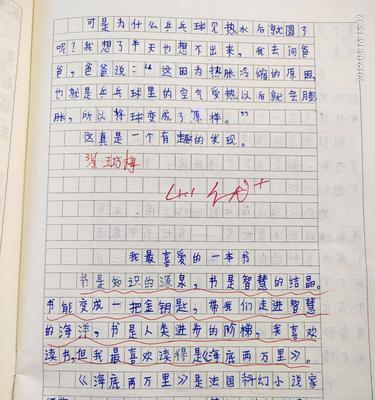 可是为什么乒乓球见热水后就圆了
呢?我想了半天也想不出来,我去问爸
爸,爸爸说:“这因为热胀冷缩的原因,
也就是乒乓球里的空气受热以后就会膨
胀,所以将球变成了原样。”
这真是一个有趣的发现。
我最喜爱的一本书
书是知识的源泉,书是智慧的结晶。
书能变成一把金钥匙,带我们走进智慧
的海洋,书是人类进步的阶梯,我喜欢
读书,但我最喜欢读得是《海底两万里》。
《海底两万里》是法国科幻小说家